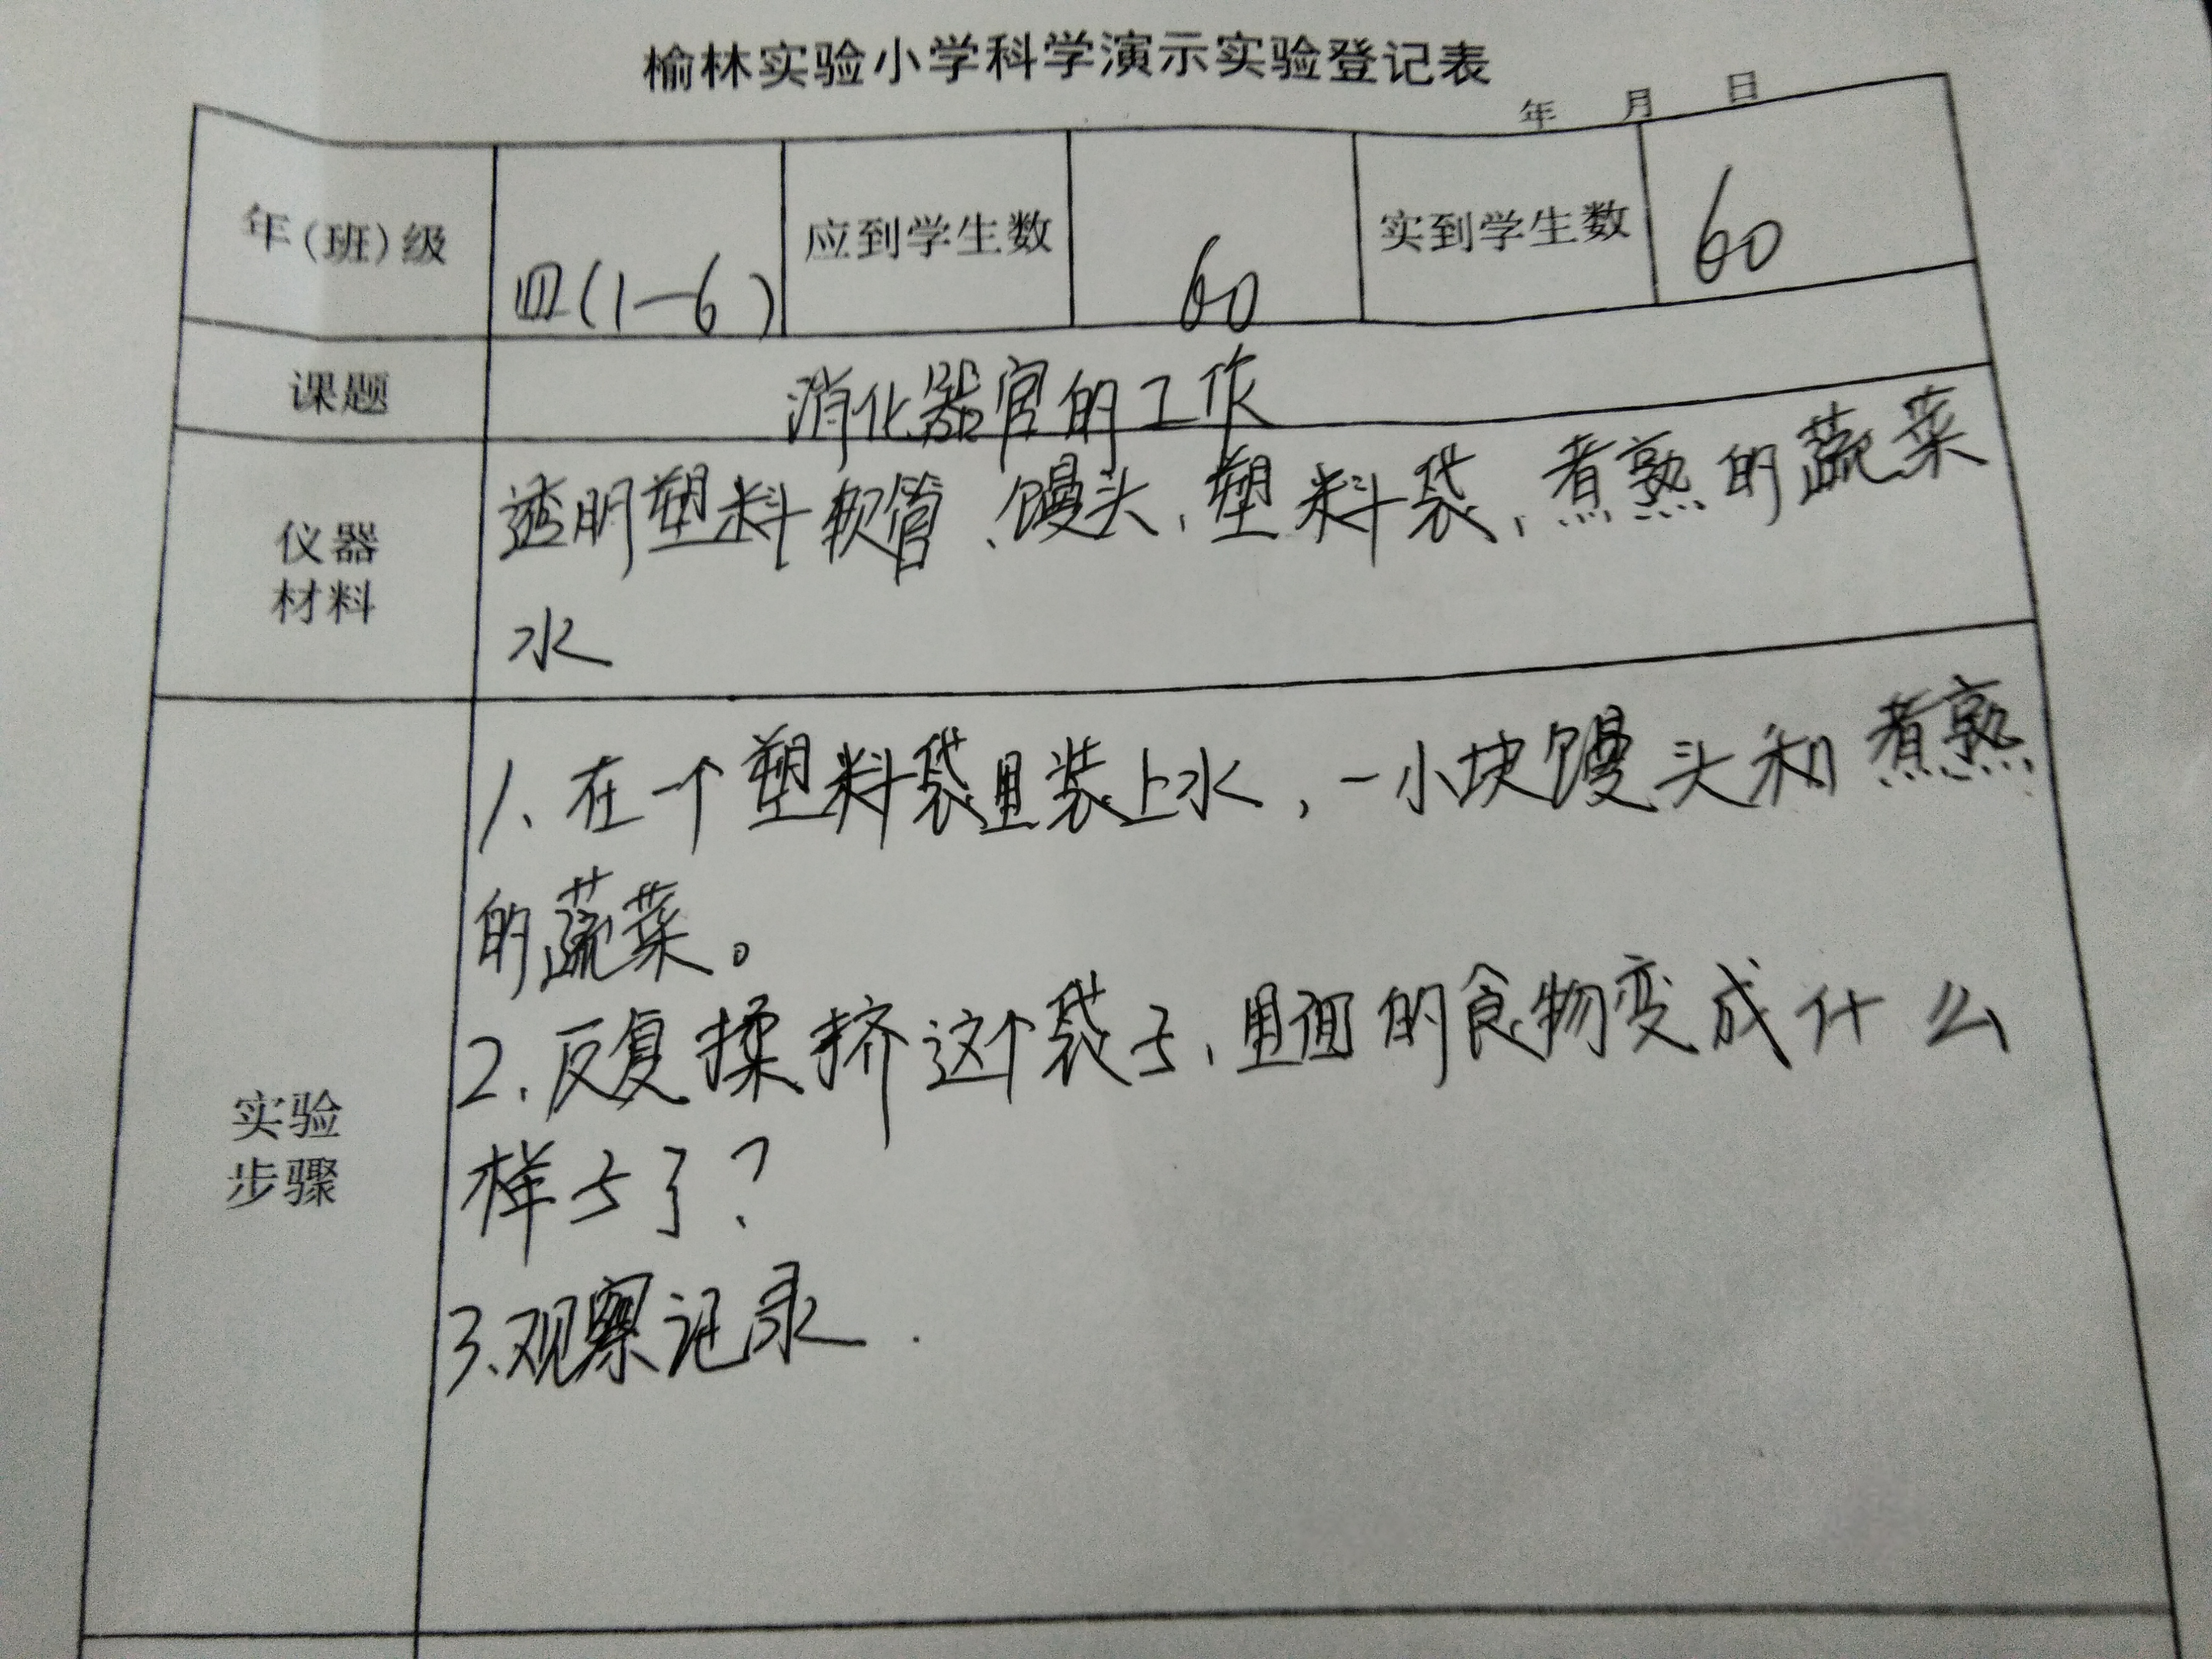 榆林实验小学科学演示实验登记表
年 月 日
年(班)级 四(1-6) 应到学生数 60 实到学生数 60
课题 消化器官的工作
仪器材料 透明塑料软管、馒头、塑料袋、煮熟的蔬菜
水
实验步骤 1、在一个塑料袋里装上水,一小块馒头和煮熟
的蔬菜。
2、反复揉挤这个袋子、里面的食物变成什么
样子了?
3、观察记录.